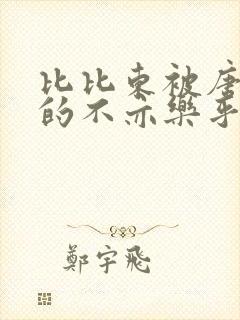 比比东被唐
的不亦樂乎
鄭宇飛